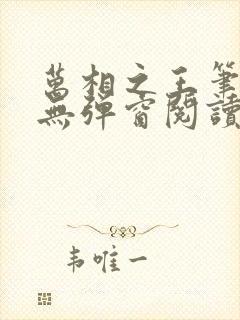 萬相之王筆
無彈窗閱讀
韦唯一